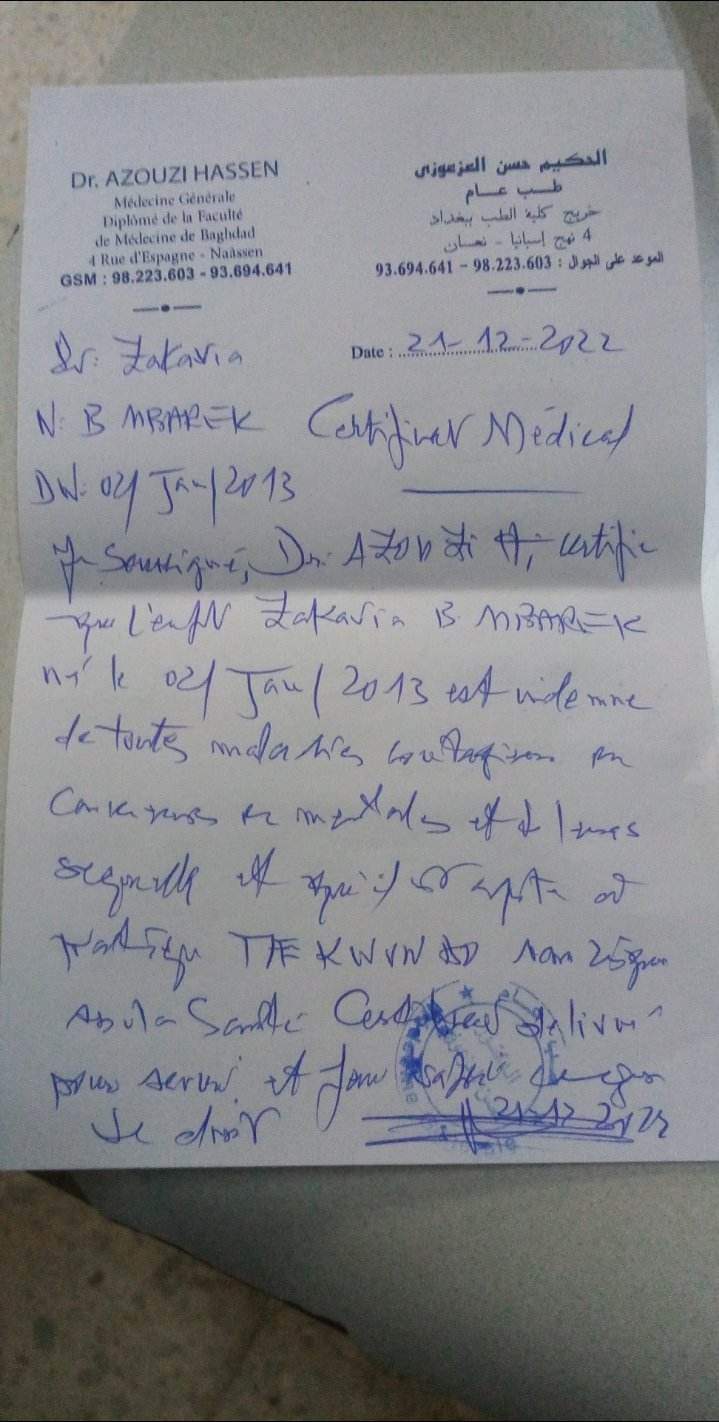 Dr. AZOUZI HASSEN
Médecine Générale
Diplômé de la Faculté
de Médecine de Baghdad
4 Rue d'Espagne - Naâssen
GSM : 98.223.603 - 93.694.641
الحكيم حسن العزعوزي
طب عام
خريج كلية الطب ببغداد
4 نهج إسبانيا - نعسان
الموعد على الجوال : 98.223.603 - 93.694.641
Zakaria
Date : 21-12-2022
N: B MBAREK
Certificat Médical
DN: 02/Jan/2013
Je Soussigné, Dr. AZOUZI H, certifie
que l'enfant Zakaria B MBAREK
né le 02/Jan/2013 est indemne
de toutes maladies contagieuses
et
et qu'il est apte
pratique
Santé Certificat délivré
pour servir et faire valoir
de droit
21-12-2022